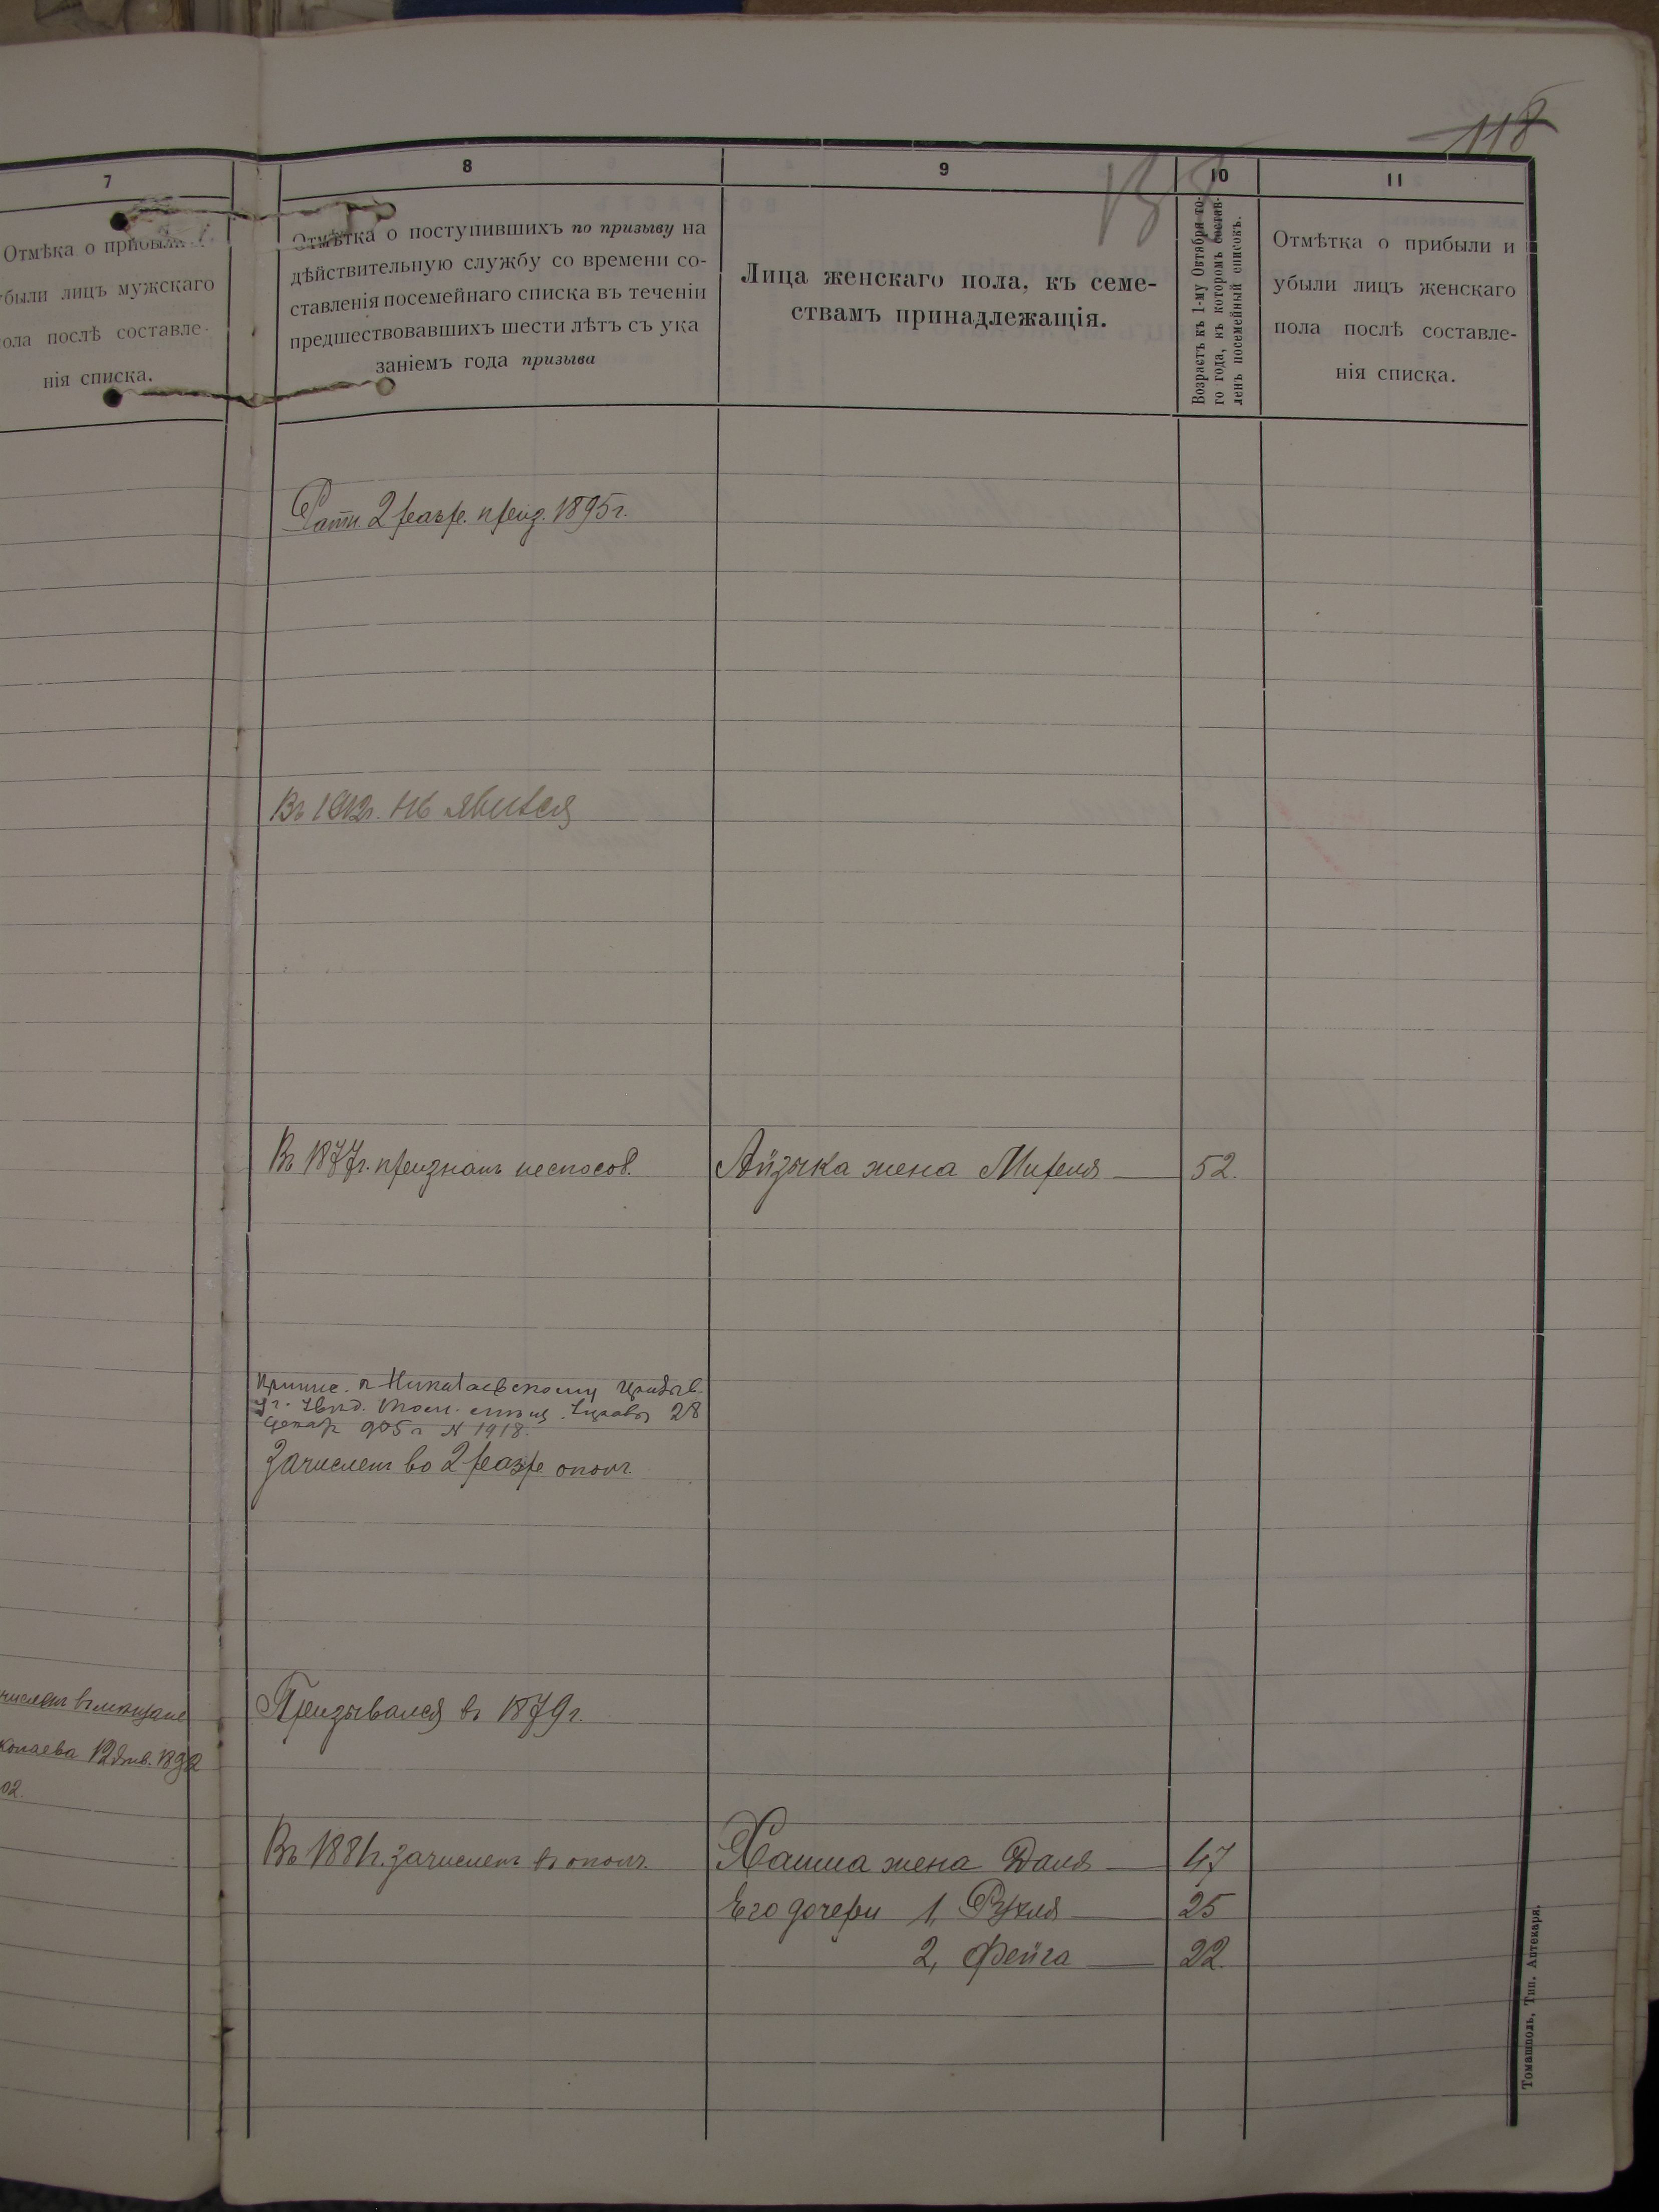 118
7
8
9
10
11
Отмѣка о прибыли
убыли лицъ мужскаго
пола послѣ составле-
нія списка.
Отмѣтка о поступившихъ по призыву на
дѣйствительную службу со времени со-
ставленія посемейнаго списка въ теченіи
предшествовавшихъ шести лѣтъ съ ука
заніемъ года призыва
Лица женскаго пола, къ семе-
ствамъ принадлежащія.
Возрастъ къ 1-му Октября то-
го года, въ которомъ состав-
ленъ посемейный списокъ.
Отмѣтка о прибыли и
убыли лицъ женскаго
пола послѣ составле-
нія списка.
Ратн. 2 разр. приз. 1895 г.
Въ 1912г. не явился
Въ 1877г. признанъ неспособ. Айзыка жена Миреля 52.
28
905 г N 1918.
Зачисленъ во 2 разр. ополч.
Призывался въ 1879 г.
численъ въ мещане
колаева 12 янв. 1892
02.
Въ 1881г. зачисленъ въ ополч. Хаима жена Даля 47
Его дочери 1, Рухля 25
2, Фейга 22.
Томашполь, Тип. Аптекаря.